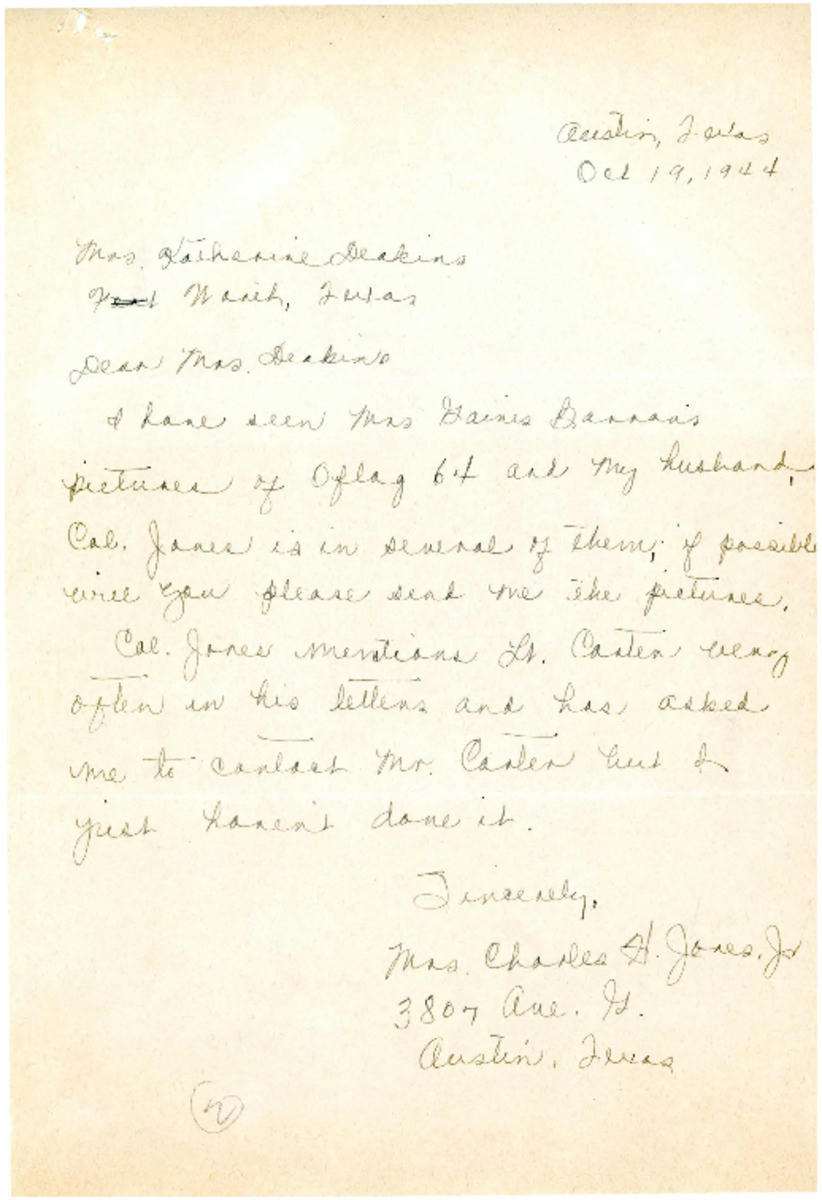 Austin, Texas
Oct 19, 1944
Mrs. Katherine Deakins
Fort Worth, Texas
Dear Mrs. Deakins
I have seen Mrs Gaines Barron's
pictures of Oflag 64 and my husband,
Col. Jones is in several of them; if possible
will you please send me the pictures.
Col. Jones mentions Lt. Carter very
often in his letters and has asked
me to contact Mr. Carter but I
just haven't done it.
Sincerely,
Mrs. Charles H. Jones, Jr
3807 Ave. G.
Austin, Texas